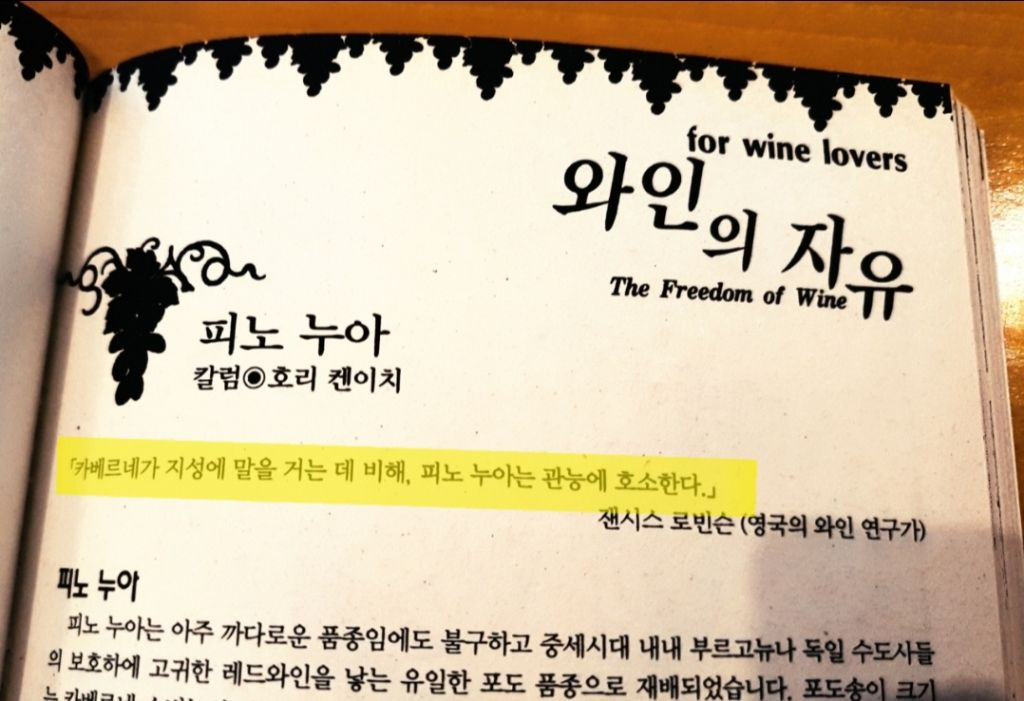 for wine lovers
와인의 자유
The Freedom of Wine
피노 누아
칼럼◉호리 켄이치
「카베르네가 지성에 말을 거는 데 비해, 피노 누아는 관능에 호소한다.」
잰시스 로빈슨 (영국의 와인 연구가)
피노 누아
피노 누아는 아주 까다로운 품종임에도 불구하고 중세시대 내내 부르고뉴나 독일 수도사들
의 보호하에 고귀한 레드와인을 낳는 유일한 포도 품종으로 재배되었습니다. 포도송이 크기
는 카베르네